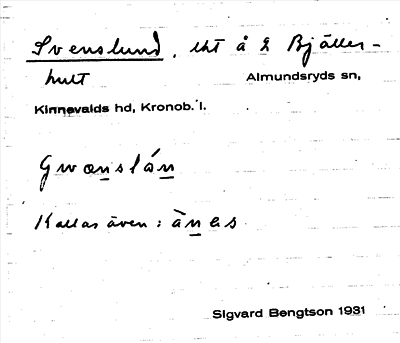 Svenslund, lht å 2 Bjäller-
hult Almundsryds sn,
Kinnevalds hd, Kronob. l.
Kallas även: ànas
Sigvard Bengtson 1931